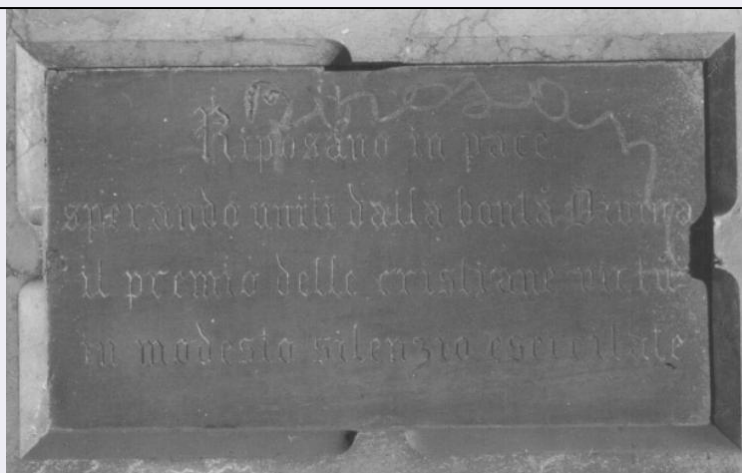 Riposano in pace
sperando uniti dalla bontà Divina
il premio delle cristiane virtù
in modesto silenzio esercitate